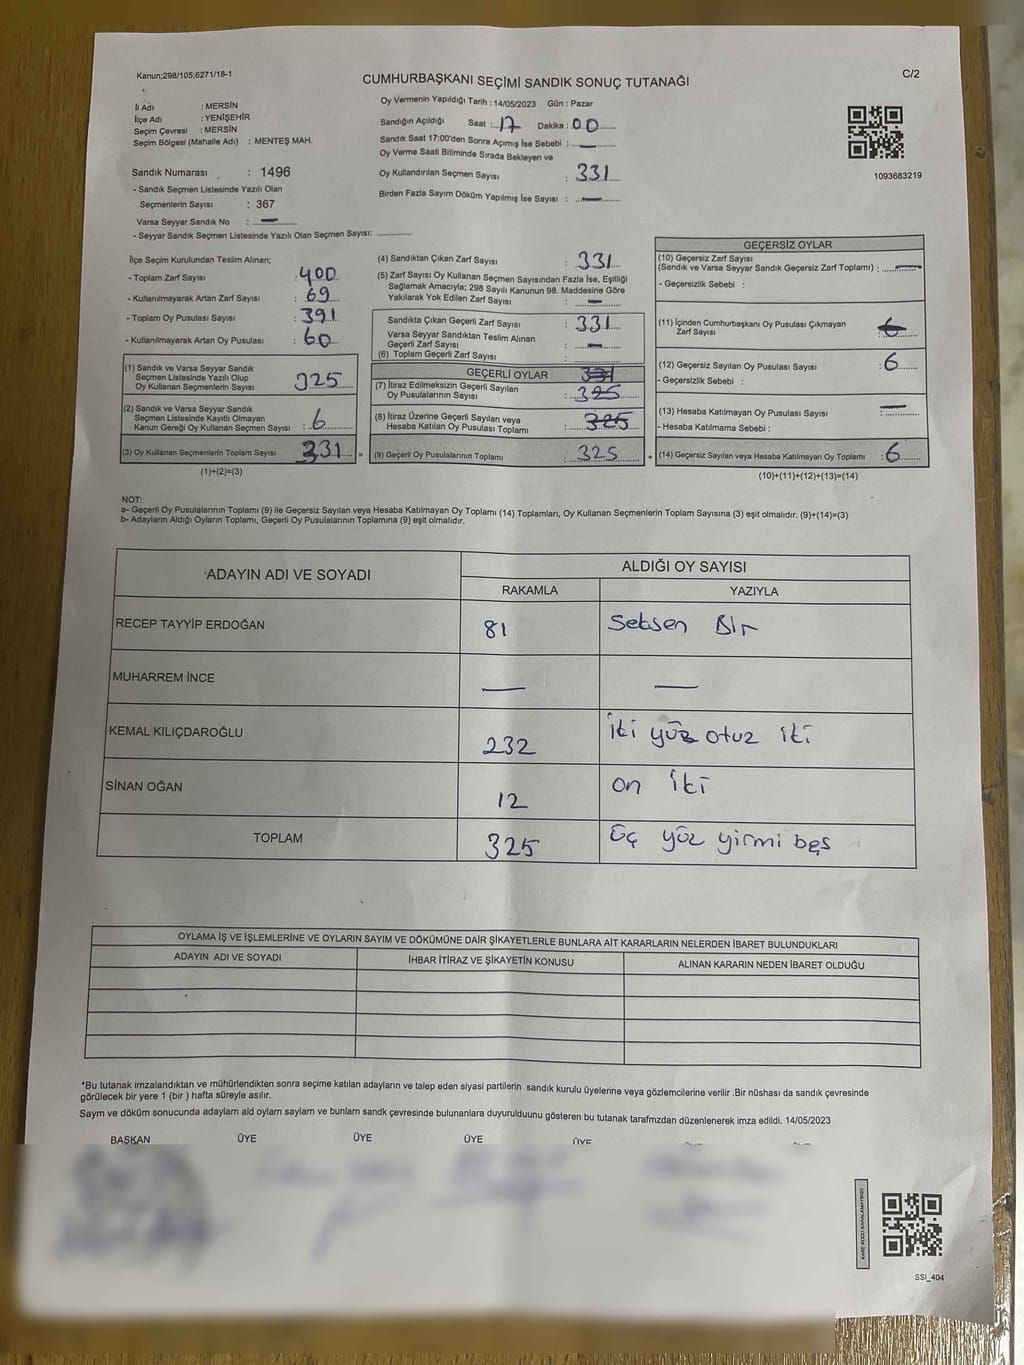 Kanun;298/105;6271/18-1
CUMHURBAŞKANI SEÇİMİ SANDIK SONUÇ TUTANAĞI
C/2
İl Adı : MERSİN
İlçe Adı : YENİŞEHİR
Seçim Çevresi : MERSİN
Seçim Bölgesi (Mahalle Adı) : MENTEŞ MAH.
Sandık Numarası : 1496
- Sandık Seçmen Listesinde Yazılı Olan
Seçmenlerin Sayısı : 367
Varsa Seyyar Sandık No : —
- Seyyar Sandık Seçmen Listesinde Yazılı Olan Seçmen Sayısı: ............
Oy Vermenin Yapıldığı Tarih : 14/05/2023 Gün : Pazar
Sandığın Açıldığı Saat : 17 Dakika : 00
Sandık Saat 17:00'den Sonra Açımış İse Sebebi : —
Oy Verme Saati Bitiminde Sırada Bekleyen ve
Oy Kullandırılan Seçmen Sayısı : 331
Birden Fazla Sayım Döküm Yapılmış İse Sayısı : —
1093683219
İlçe Seçim Kurulundan Teslim Alınan;
- Toplam Zarf Sayısı : 400
- Kullanılmayarak Artan Zarf Sayısı : 69
- Toplam Oy Pusulası Sayısı : 391
- Kullanılmayarak Artan Oy Pusulası : 60
(1) Sandık ve Varsa Seyyar Sandık
Seçmen Listesinde Yazılı Olup
Oy Kullanan Seçmenlerin Sayısı 325
(2) Sandık ve Varsa Seyyar Sandık
Seçmen Listesinde Kayıtlı Olmayan
Kanun Gereği Oy Kullanan Seçmen Sayısı : 6
(3) Oy Kullanan Seçmenlerin Toplam Sayısı 331 =
(1)+(2)=(3)
(4) Sandıktan Çıkan Zarf Sayısı : 331
(5) Zarf Sayısı Oy Kullanan Seçmen Sayısından Fazla İse, Eşitliği
Sağlamak Amacıyla; 298 Sayılı Kanunun 98. Maddesine Göre
Yakılarak Yok Edilen Zarf Sayısı : —
Sandıkta Çıkan Geçerli Zarf Sayısı : 331
Varsa Seyyar Sandıktan Teslim Alınan
Geçerli Zarf Sayısı : —
(6) Toplam Geçerli Zarf Sayısı :
GEÇERLİ OYLAR 331
(7) İtiraz Edilmeksizin Geçerli Sayılan
Oy Pusulalarının Sayısı : 325
(8) İtiraz Üzerine Geçerli Sayılan veya
Hesaba Katılan Oy Pusulası Toplamı : 325
(9) Geçerli Oy Pusulalarının Toplamı : 325 +
GEÇERSİZ OYLAR
(10) Geçersiz Zarf Sayısı
(Sandık ve Varsa Seyyar Sandık Geçersiz Zarf Toplamı) : —
- Geçersizlik Sebebi :
(11) İçinden Cumhurbaşkanı Oy Pusulası Çıkmayan
Zarf Sayısı : 6
(12) Geçersiz Sayılan Oy Pusulası Sayısı : 6
- Geçersizlik Sebebi :
(13) Hesaba Katılmayan Oy Pusulası Sayısı : —
- Hesaba Katılmama Sebebi :
(14) Geçersiz Sayılan veya Hesaba Katılmayan Oy Toplamı : 6
(10)+(11)+(12)+(13)=(14)
NOT:
a- Geçerli Oy Pusulalarının Toplamı (9) ile Geçersiz Sayılan veya Hesaba Katılmayan Oy Toplamı (14) Toplamları, Oy Kullanan Seçmenlerin Toplam Sayısına (3) eşit olmalıdır. (9)+(14)=(3)
b- Adayların Aldığı Oyların Toplamı, Geçerli Oy Pusulalarının Toplamına (9) eşit olmalıdır.
ADAYIN ADI VE SOYADI ALDIĞI OY SAYISI
RAKAMLA YAZIYLA
RECEP TAYYİP ERDOĞAN 81 Seksen Bir
MUHARREM İNCE — —
KEMAL KILIÇDAROĞLU 232 İki yüz otuz iki
SİNAN OĞAN 12 on iki
TOPLAM 325 Üç yüz yirmi beş
OYLAMA İŞ VE İŞLEMLERİNE VE OYLARIN SAYIM VE DÖKÜMÜNE DAİR ŞİKAYETLERLE BUNLARA AİT KARARLARIN NELERDEN İBARET BULUNDUKLARI
ADAYIN ADI VE SOYADI İHBAR İTİRAZ VE ŞİKAYETİN KONUSU ALINAN KARARIN NEDEN İBARET OLDUĞU
*Bu tutanak imzalandıktan ve mühürlendikten sonra seçime katılan adayların ve talep eden siyasi partilerin sandık kurulu üyelerine veya gözlemcilerine verilir .Bir nüshası da sandık çevresinde
görülecek bir yere 1 (bir ) hafta süreyle asılır.
Sayım ve döküm sonucunda adaylarn ald oylarn saylarn ve bunlarn sandk çevresinde bulunanlara duyurulduunu gösteren bu tutanak tarafmzdan düzenlenerek imza edildi. 14/05/2023
BAŞKAN ÜYE ÜYE ÜYE ÜYE
KARE KODU KARALAMAYINIZ!
SSI_404